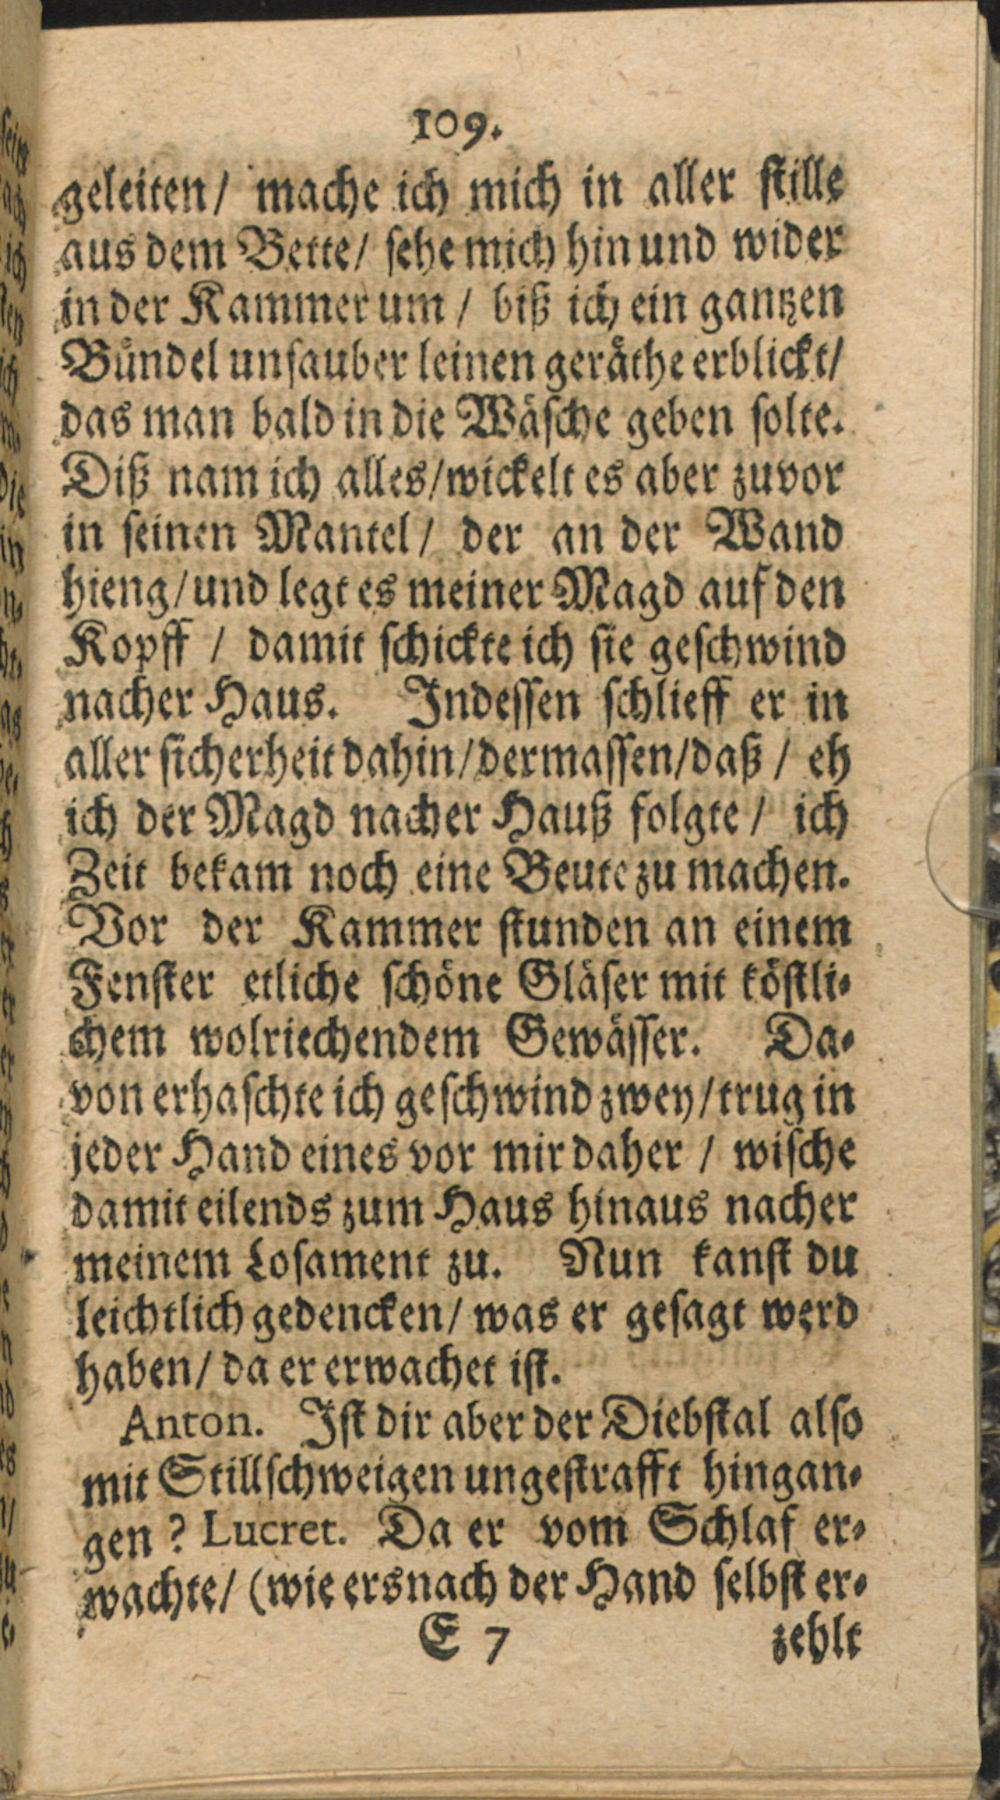 109.
geleiten/ mache ich mich in aller stille
aus dem Bette/ sehe mich hin und wider
in der Kammer um / biß ich ein gantzen
Bündel unsauber leinen geräthe erblickt/
das man bald in die Wäsche geben solte.
Diß nam ich alles/wickelt es aber zuvor
in seinen Mantel/ der an der Wand
hieng/und legt es meiner Magd auf den
Kopff / damit schickte ich sie geschwind
nacher Haus. Indessen schlieff er in
aller sicherheit dahin/dermassen/daß / eh
ich der Magd nacher Hauß folgte/ ich
Zeit bekam noch eine Beute zu machen.
Vor der Kammer stunden an einem
Fenster etliche schöne Gläser mit köstli-
chem wolriechendem Gewässer. Da-
von erhaschte ich geschwind zwey/trug in
jeder Hand eines vor mir daher / wische
damit eilends zum Haus hinaus nacher
meinem Losament zu. Nun kanst du
leichtlich gedencken/ was er gesagt werd
haben/ da er erwachet ist.
Anton. Ist dir aber der Diebstal also
mit Stillschweigen ungestrafft hingan-
gen? Lucret. Da er vom Schlaf er-
wachte/ (wie ers nach der Hand selbst er-
E 7 zehlt